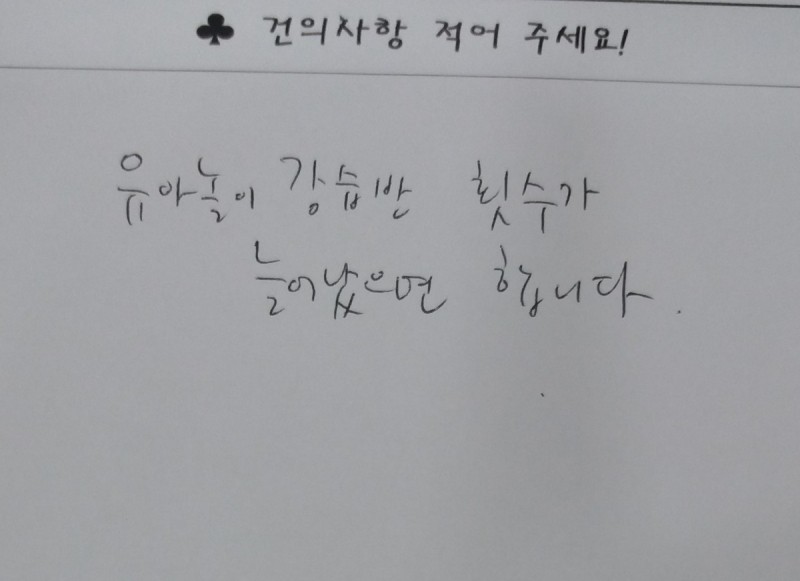 ♣ 건의사항 적어 주세요!
유아놀이 강습반 횟수가
늘어났으면 합니다.